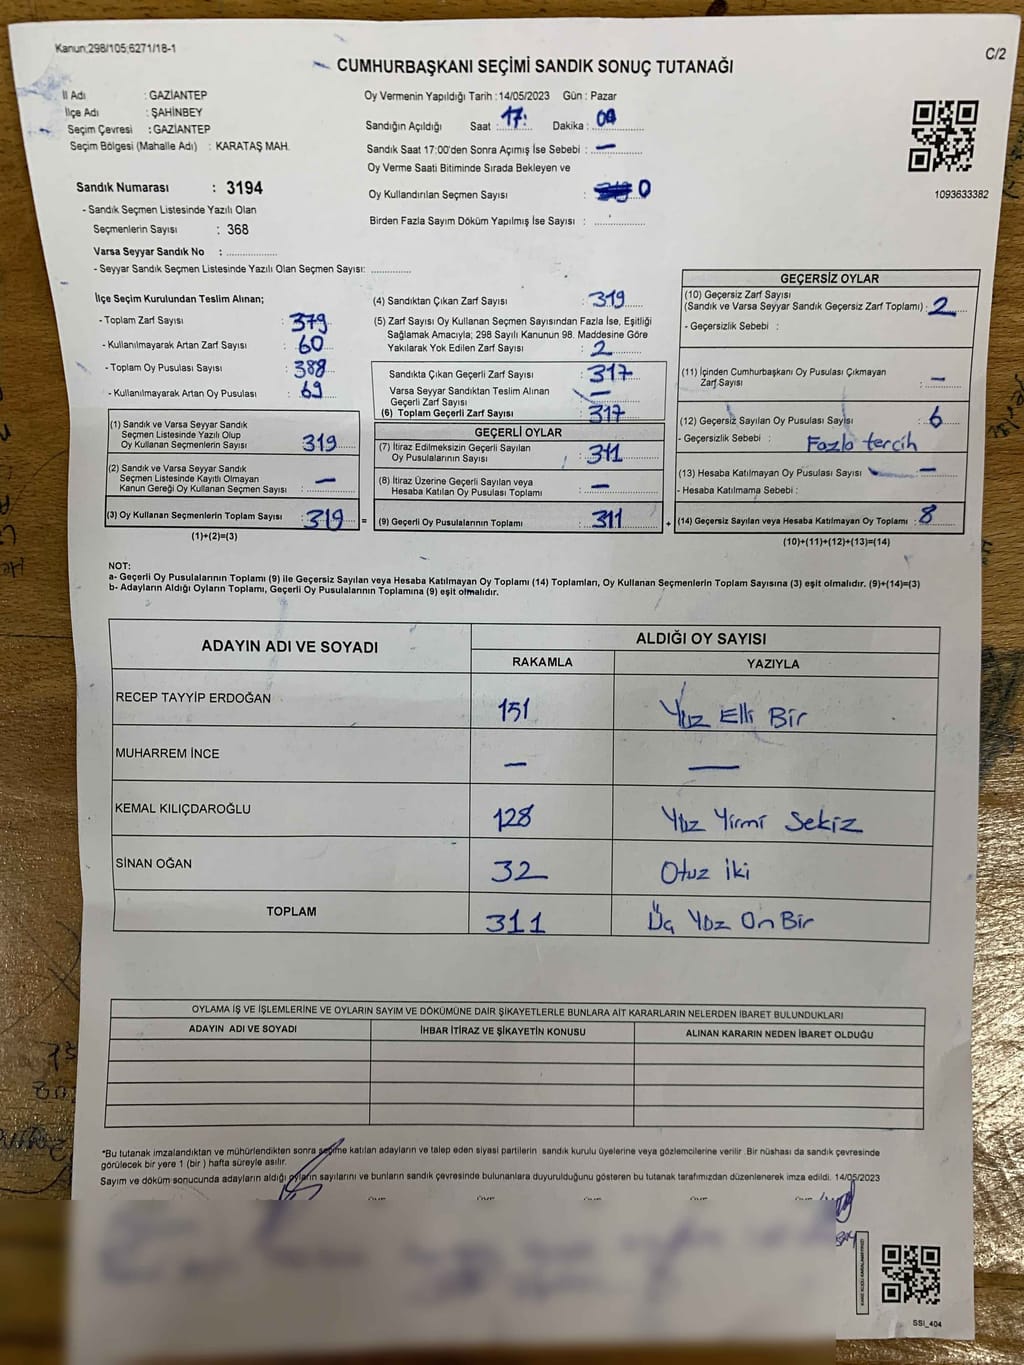 Kanun;298/105;6271/18-1
C/2
CUMHURBAŞKANI SEÇİMİ SANDIK SONUÇ TUTANAĞI
İl Adı : GAZİANTEP
İlçe Adı : ŞAHİNBEY
Seçim Çevresi : GAZİANTEP
Seçim Bölgesi (Mahalle Adı) : KARATAŞ MAH.
Sandık Numarası : 3194
- Sandık Seçmen Listesinde Yazılı Olan
Seçmenlerin Sayısı : 368
Varsa Seyyar Sandık No :
- Seyyar Sandık Seçmen Listesinde Yazılı Olan Seçmen Sayısı:
Oy Vermenin Yapıldığı Tarih : 14/05/2023 Gün : Pazar
Sandığın Açıldığı Saat : 17: Dakika :
Sandık Saat 17:00'den Sonra Açımış İse Sebebi : —
Oy Verme Saati Bitiminde Sırada Bekleyen ve
Oy Kullandırılan Seçmen Sayısı : 0
Birden Fazla Sayım Döküm Yapılmış İse Sayısı :
1093633382
İlçe Seçim Kurulundan Teslim Alınan;
- Toplam Zarf Sayısı : 379
- Kullanılmayarak Artan Zarf Sayısı : 60
- Toplam Oy Pusulası Sayısı : 388
- Kullanılmayarak Artan Oy Pusulası : 69
(1) Sandık ve Varsa Seyyar Sandık
Seçmen Listesinde Yazılı Olup
Oy Kullanan Seçmenlerin Sayısı : 319
(2) Sandık ve Varsa Seyyar Sandık
Seçmen Listesinde Kayıtlı Olmayan
Kanun Gereği Oy Kullanan Seçmen Sayısı : —
(3) Oy Kullanan Seçmenlerin Toplam Sayısı : 319 =
(1)+(2)=(3)
(4) Sandıktan Çıkan Zarf Sayısı : 319
(5) Zarf Sayısı Oy Kullanan Seçmen Sayısından Fazla İse, Eşitliği
Sağlamak Amacıyla; 298 Sayılı Kanunun 98. Maddesine Göre
Yakılarak Yok Edilen Zarf Sayısı : 2
Sandıkta Çıkan Geçerli Zarf Sayısı : 317
Varsa Seyyar Sandıktan Teslim Alınan
Geçerli Zarf Sayısı : —
(6) Toplam Geçerli Zarf Sayısı : 317
GEÇERLİ OYLAR
(7) İtiraz Edilmeksizin Geçerli Sayılan
Oy Pusulalarının Sayısı : 311
(8) İtiraz Üzerine Geçerli Sayılan veya
Hesaba Katılan Oy Pusulası Toplamı : —
(9) Geçerli Oy Pusulalarının Toplamı : 311 +
GEÇERSİZ OYLAR
(10) Geçersiz Zarf Sayısı
(Sandık ve Varsa Seyyar Sandık Geçersiz Zarf Toplamı) : 2
- Geçersizlik Sebebi :
(11) İçinden Cumhurbaşkanı Oy Pusulası Çıkmayan
Zarf Sayısı : —
(12) Geçersiz Sayılan Oy Pusulası Sayısı : 6
- Geçersizlik Sebebi : Fazla tercih
(13) Hesaba Katılmayan Oy Pusulası Sayısı : —
- Hesaba Katılmama Sebebi :
(14) Geçersiz Sayılan veya Hesaba Katılmayan Oy Toplamı : 8
(10)+(11)+(12)+(13)=(14)
NOT:
a- Geçerli Oy Pusulalarının Toplamı (9) ile Geçersiz Sayılan veya Hesaba Katılmayan Oy Toplamı (14) Toplamları, Oy Kullanan Seçmenlerin Toplam Sayısına (3) eşit olmalıdır. (9)+(14)=(3)
b- Adayların Aldığı Oyların Toplamı, Geçerli Oy Pusulalarının Toplamına (9) eşit olmalıdır.
ADAYIN ADI VE SOYADI ALDIĞI OY SAYISI
RAKAMLA YAZIYLA
RECEP TAYYİP ERDOĞAN 151 Yüz Elli Bir
MUHARREM İNCE — —
KEMAL KILIÇDAROĞLU 128 Yüz Yirmi Sekiz
SİNAN OĞAN 32 Otuz iki
TOPLAM 311 Üç Yüz On Bir
OYLAMA İŞ VE İŞLEMLERİNE VE OYLARIN SAYIM VE DÖKÜMÜNE DAİR ŞİKAYETLERLE BUNLARA AİT KARARLARIN NELERDEN İBARET BULUNDUKLARI
ADAYIN ADI VE SOYADI İHBAR İTİRAZ VE ŞİKAYETİN KONUSU ALINAN KARARIN NEDEN İBARET OLDUĞU
*Bu tutanak imzalandıktan ve mühürlendikten sonra seçime katılan adayların ve talep eden siyasi partilerin sandık kurulu üyelerine veya gözlemcilerine verilir .Bir nüshası da sandık çevresinde
görülecek bir yere 1 (bir ) hafta süreyle asılır.
Sayım ve döküm sonucunda adayların aldığı oyların sayılarını ve bunların sandık çevresinde bulunanlara duyurulduğunu gösteren bu tutanak tarafımızdan düzenlenerek imza edildi. 14/05/2023
SSI_404